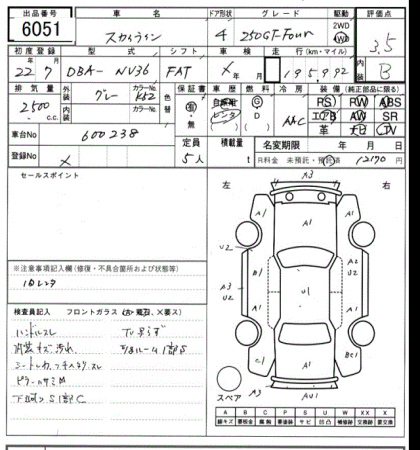 出品番号 車名 ドア形状 グレード 駆動 評価点
6051 スカイライン 4 250GT-Four 2WD 4WD 3.5
初度登録 型式 シフト 車検 走行(km・マイル) 内装
22年7月 DBA-NV36 FAT ×年月 195,992 B
排気量 外装 カラーNo. 色替 保証書 車歴 燃料 冷房 装備(純正部品に限る)
2500 c.c. グレー K52 有・無 自家用 レンタ G D AAC PS PW ABS
エアB AW SR
革 ナビ TV
車台No 600238 定員 積載量 名変期限 年 月 日
登録No × 5人 t R料金 未預託・預託済 12170円
セールスポイント
左 右
※注意事項記入欄(修復・不具合箇所および状態等)
旧レンタ
検査員記入 フロントガラス(○=飛石、×要ス)
ハンドルスレ TV映らず
内装キズ汚れ
シート
下廻りS1部C
A3
A1 A1 A1
U2 A1 A2 U2
A3 U2 B1 U1
A1 A1
C1 A1 BC1
A3 AU1
スペア
A B C P S U W X XX
線キズ 要板金 腐触 要塗装 サビ 凹凸 補修跡 要交換 交換済